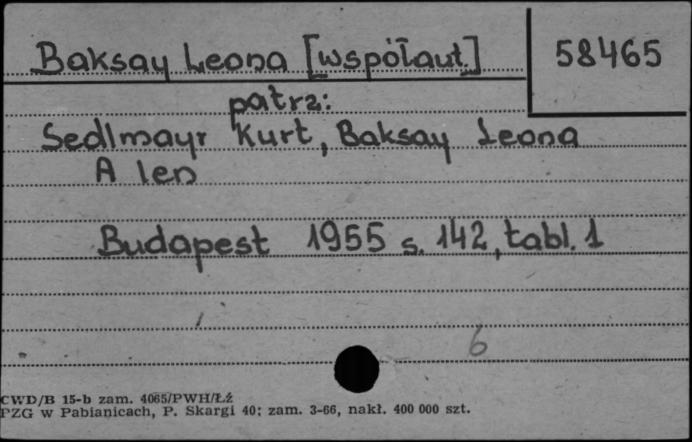 Baksay Leona [współaut.] 58465
patrz:
Sedlmayr Kurt, Baksay Leona
A len
Budapest 1955 s. 142, tabl. 1
6
CWD/B 15-b zam. 4065/PWH/Łż
PZG w Pabianicach, P. Skargi 40; zam. 3-66, nakł. 400 000 szt.